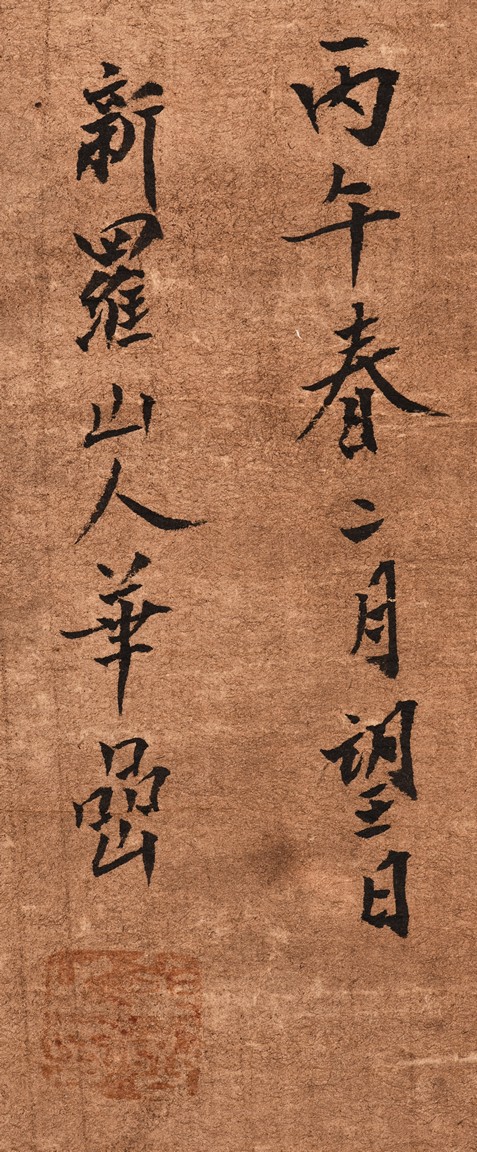 丙午春二月望日
新羅山人華喦